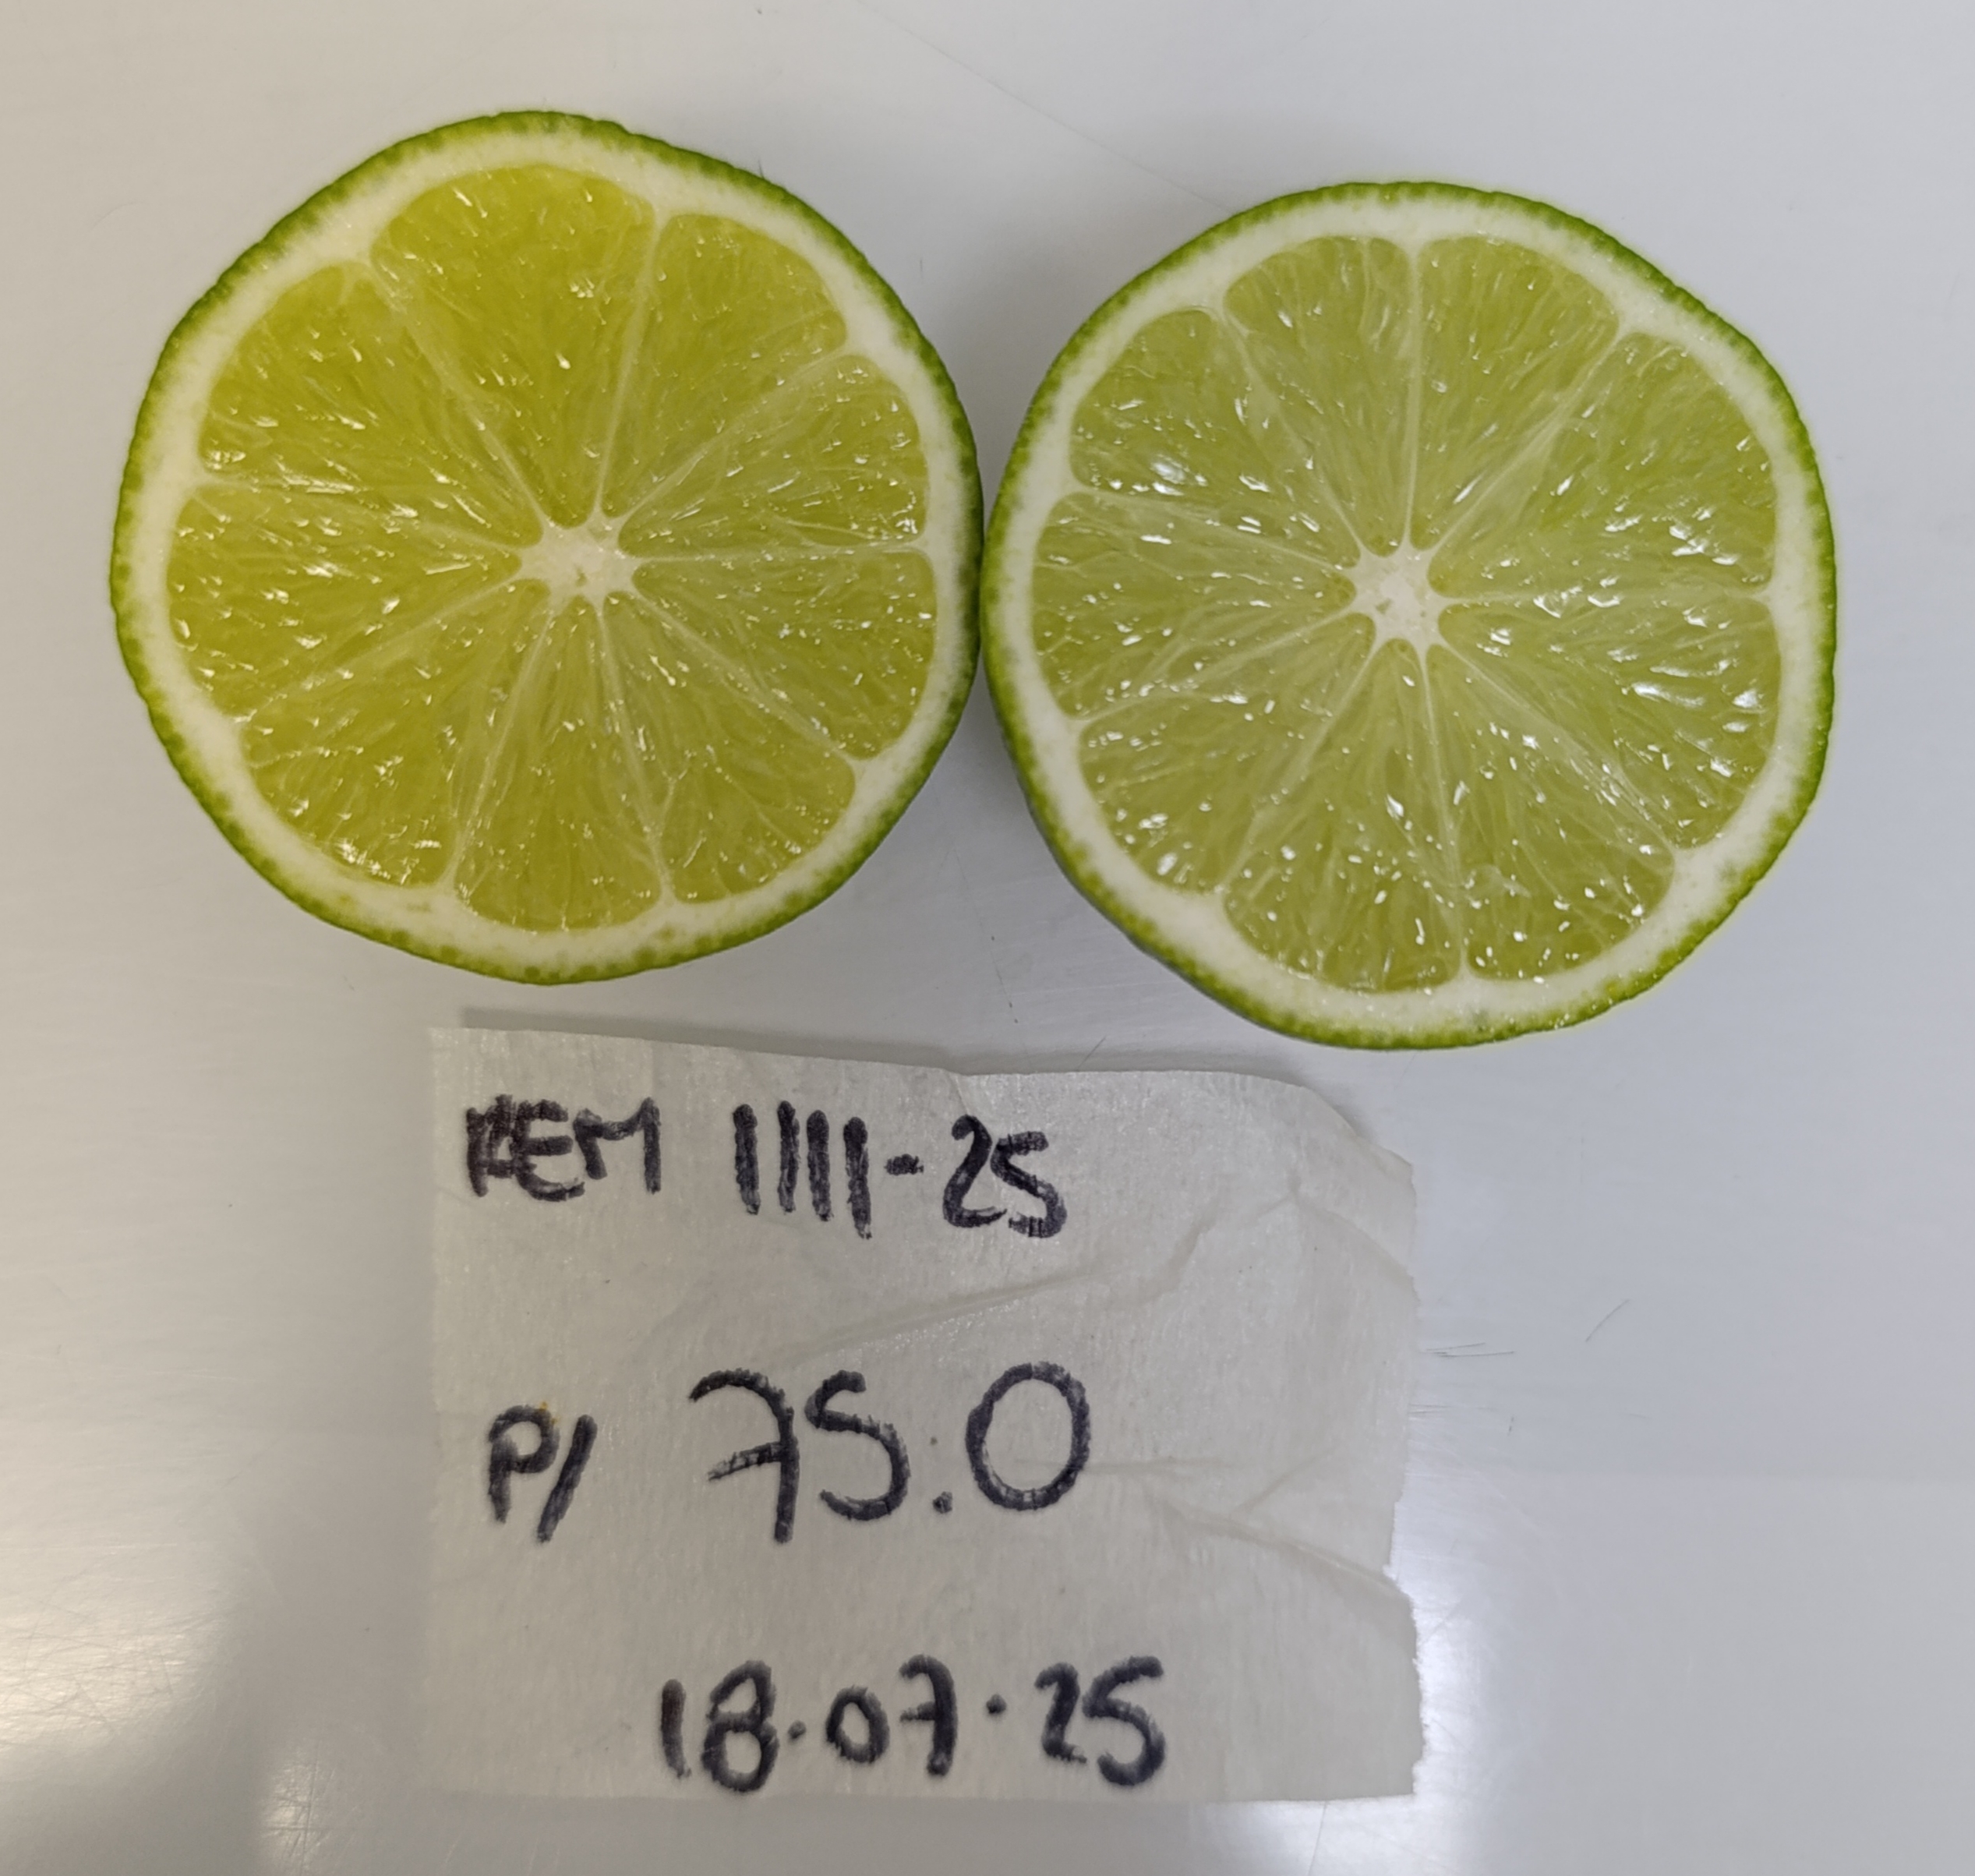 REM 1111-25
P/ 75.0
18.07.25